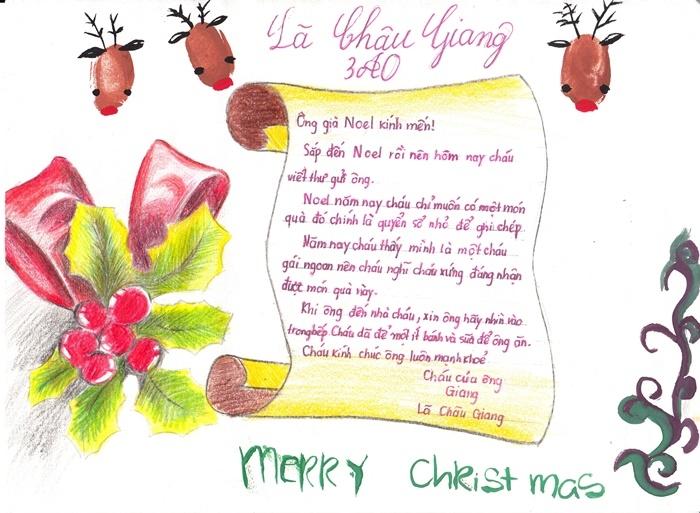 Lã Châu Giang
3A0
Ông già Noel kính mến!
Sắp đến Noel rồi nên hôm nay cháu
viết thư gửi ông.
Noel năm nay cháu chỉ muốn có một món
quà đó chính là quyển sổ nhỏ để ghi chép
Năm nay cháu thấy mình là một cháu
gái ngoan nên cháu nghĩ cháu xứng đáng nhận
được món quà này.
Khi ông đến nhà cháu, xin ông hãy nhìn vào
trong bếp. Cháu đã để một ít bánh và sữa để ông ăn.
Cháu kính chúc ông luôn mạnh khoẻ
Cháu của ông
Giang
Lã Châu Giang
MERRY Christmas